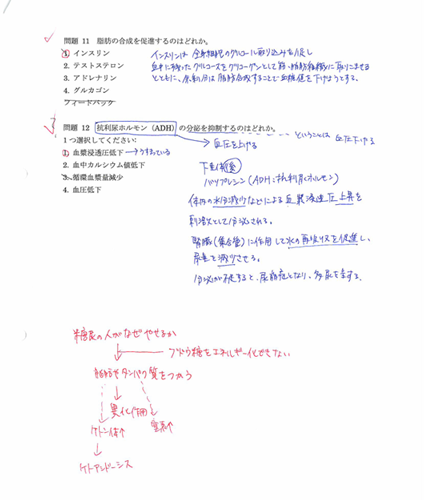 問題 11 脂肪の合成を促進するのはどれか。
1. インスリン
インスリンは全身細胞のグルコール取り込みを促し
2. テストステロン
血中に残ったグルコースをグリコーゲンとして肝・筋・脂肪組織に取りこませる
3. アドレナリン
とともに、余剰分は脂肪合成することで血糖値を下げようとする。
4. グルカゴン
フィードバック
問題 12 抗利尿ホルモン（ADH）の分泌を抑制するのはどれか。
1 つ選択してください:
血圧を上げる ---- ということは 血圧下げる
1. 血漿浸透圧低下 → うすまっている
2. 血中カルシウム値低下
下垂体後
3. 循環血漿量減少
バソプレシン（ADH：抗利尿ホルモン）
4. 血圧低下
体内の水分減少などによる血漿浸透圧上昇を
刺激として分泌される。
腎臓（集合管）に作用して水の再吸収を促進し、
尿量を減少させる。
分泌が不足すると、尿崩症となり、多尿を呈する。
糖尿の人がなぜやせるか
ブドウ糖をエネルギー化ができない
脂肪やタンパク質をつかう
異化作用
ケトン体↑
窒素↑
ケトアシドーシス